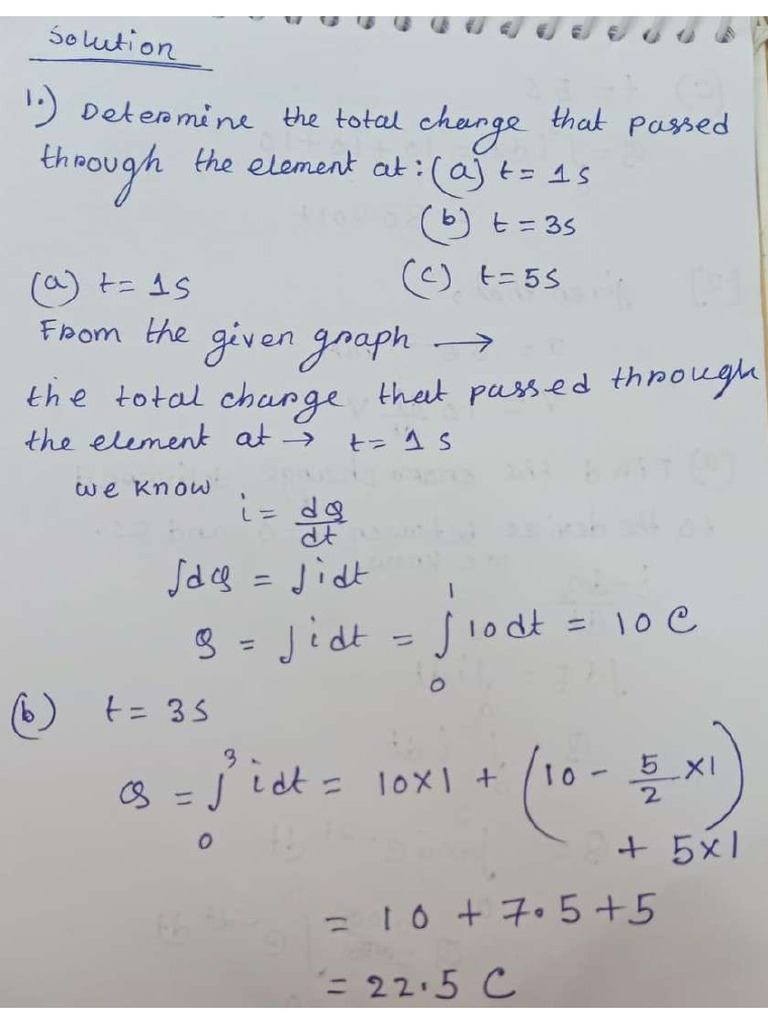 Solution
1.) Determine the total charge that passed
through the element at: (a) t = 1s
(b) t = 3s
(c) t = 5s
(a) t = 1s
From the given graph →
the total charge that passed through
the element at → t = 1s
we know
i = dq/dt
∫dq = ∫idt
q = ∫idt = ∫₀¹ 10dt = 10 C
(b) t = 3s
q = ∫₀³ idt = 10×1 + (10 - 5/2 ×1)
+ 5×1
= 10 + 7.5 + 5
= 22.5 C